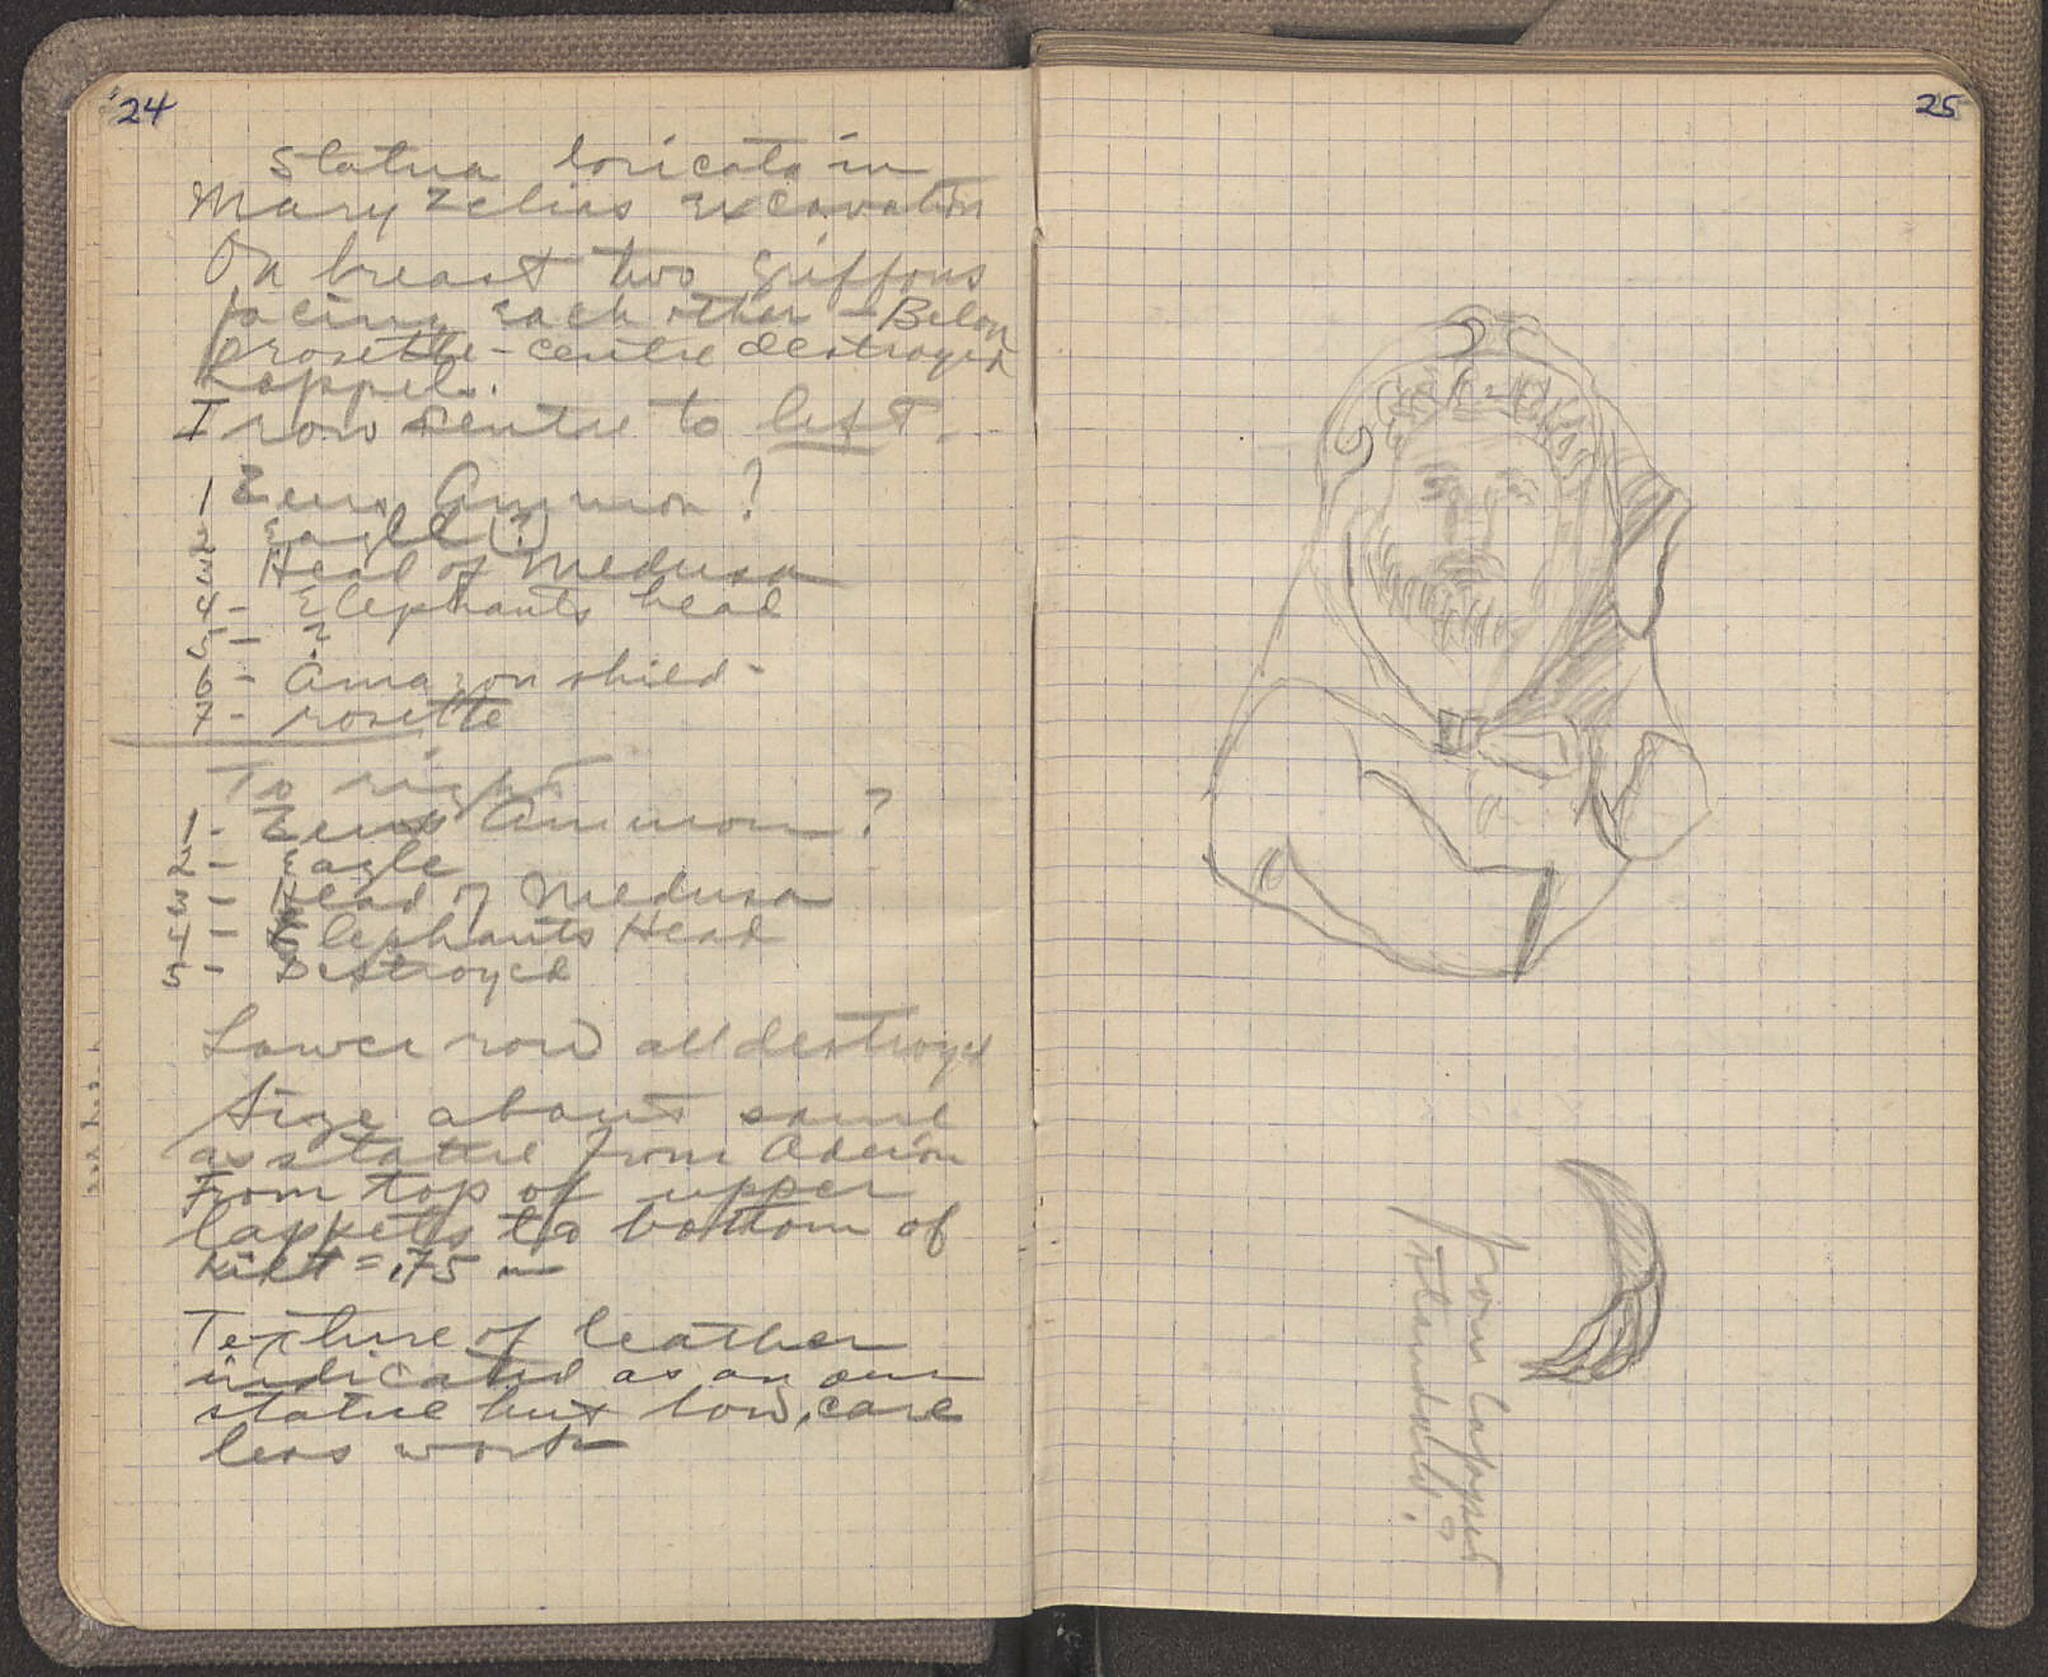 24
Statua loricata in
Mary Zelias excavation
On breast two griffons
facing each other - Below
rosette - centre destroyed
Lappets.
I row centre to left.
1 Zeus Ammon ?
2 Eagle (?)
3 Head of Medusa
4 - Elephants head
5 - ?
6 - Amazon shield -
7 - rosette
To right
1 - Zeus Ammon ?
2 - Eagle
3 - Head of Medusa
4 - Elephants Head
5 - Destroyed
Lower row all destroyed
Size about same
as statue from Odeion
From top of upper
lappets to bottom of
kilt = .75 m
Texture of leather
indicated as on our
statue but low, care
less work
25
from lappet